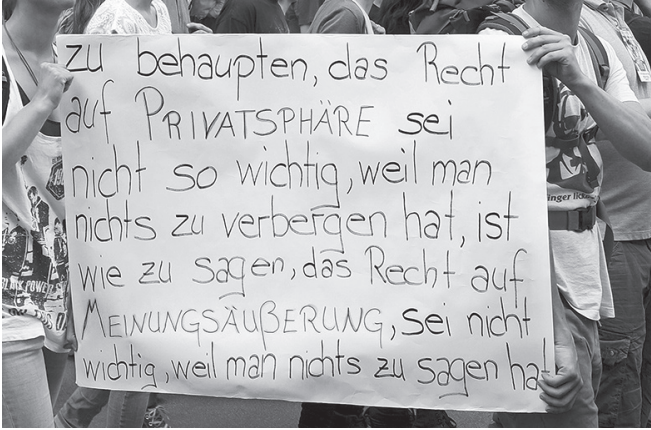 zu behaupten, das Recht
auf PRIVATSPHÄRE sei
nicht so wichtig, weil man
nichts zu verbergen hat, ist
wie zu sagen, das Recht auf
MEINUNGSÄUßERUNG, sei nicht
wichtig, weil man nichts zu sagen hat
inger lick